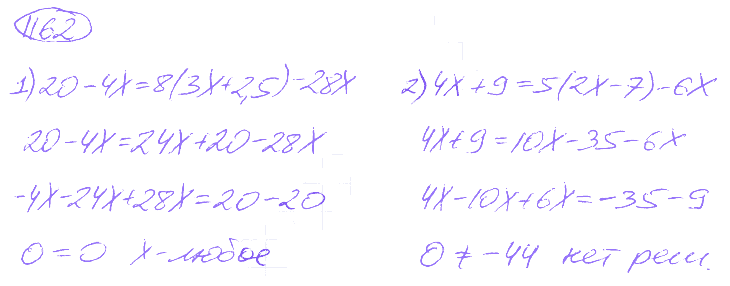 1162
1) 20 - 4x = 8(3x + 2,5) - 28x
20 - 4x = 24x + 20 - 28x
-4x - 24x + 28x = 20 - 20
0 = 0 x - любое
2) 4x + 9 = 5(2x - 7) - 6x
4x + 9 = 10x - 35 - 6x
4x - 10x + 6x = -35 - 9
0 ≠ -44 нет реш.